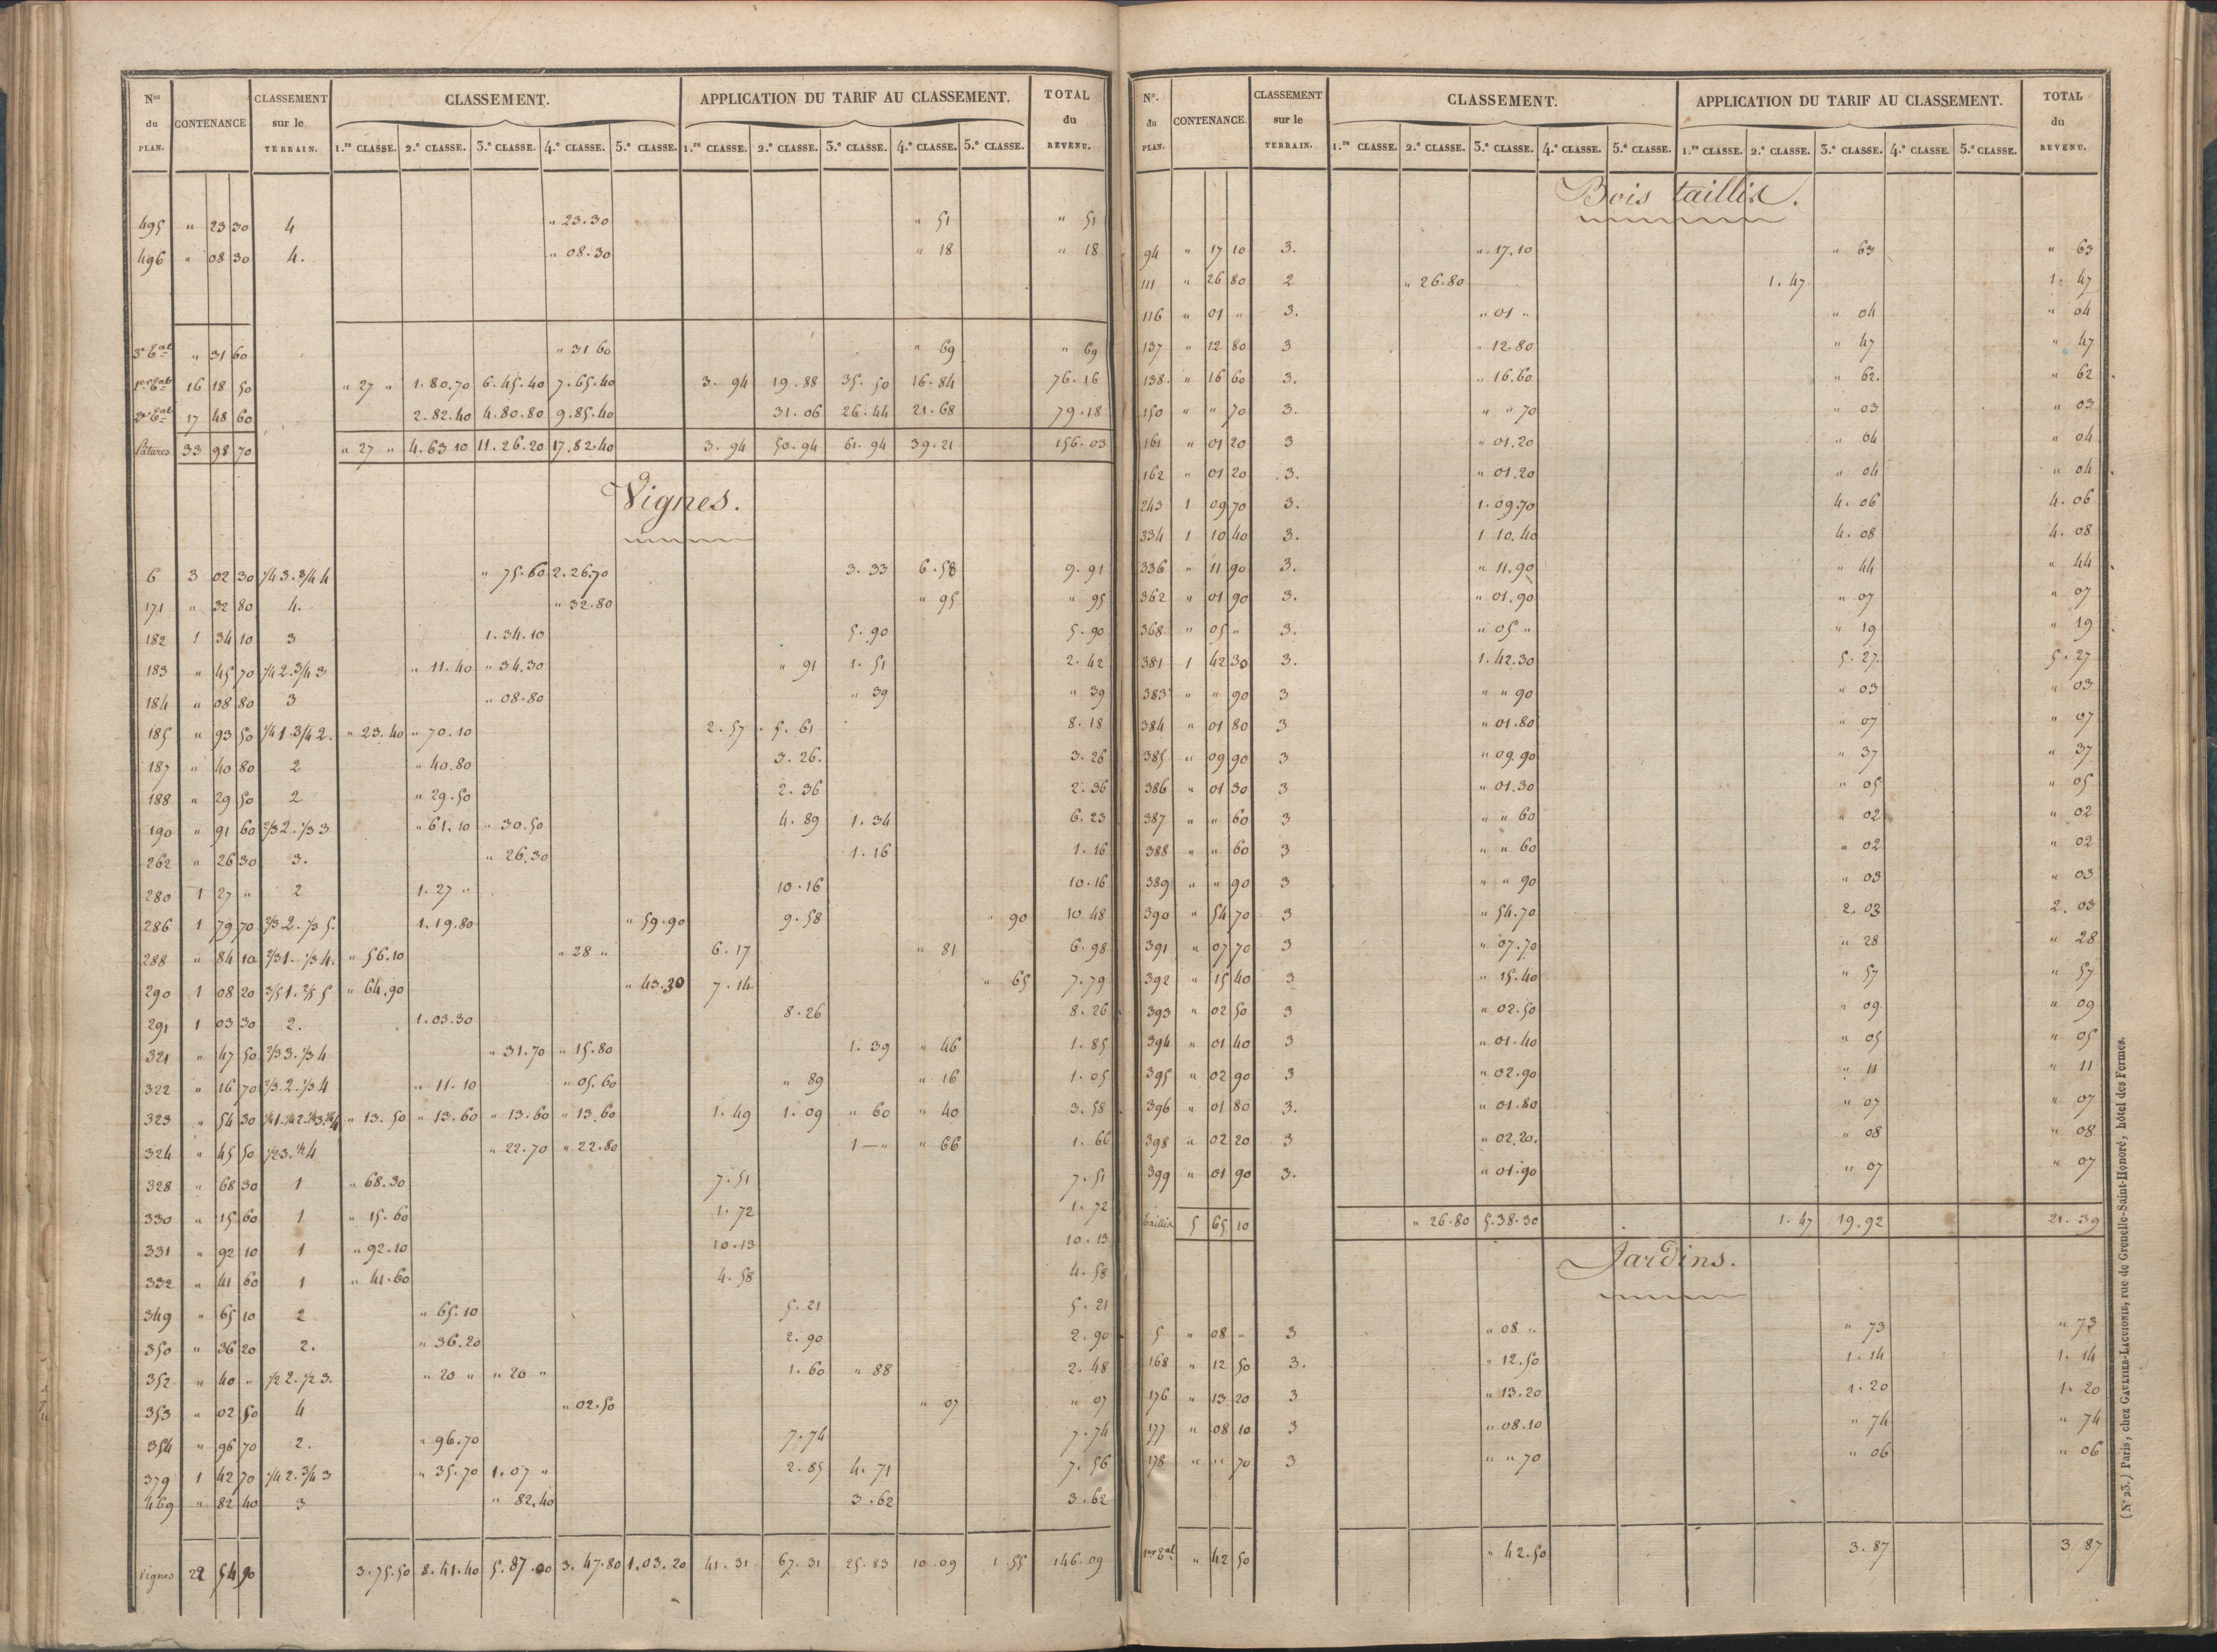 Nos du PLAN. CONTENANCE CLASSEMENT sur le TERRAIN. CLASSEMENT. APPLICATION DU TARIF AU CLASSEMENT. TOTAL du REVENU.
1.re CLASSE. 2.e CLASSE. 3.e CLASSE. 4.e CLASSE. 5.e CLASSE. 1.re CLASSE. 2.e CLASSE. 3.e CLASSE. 4.e CLASSE. 5.e CLASSE.
495 " 23 30 4 " 23.30 " 51 " 51
496 " 08 30 4. " 08.30 " 18 " 18
3e t.al " 31 60 " 31 60 " 69 " 69
1er t.al 16 18 50 " 27 " 1.80.70 6.45.40 7.65.40 3. 94 19.88 35.50 16.84 76.16
2e t.al 17 48 60 2.82.40 4.80.80 9.85.40 31.06 26.44 21.68 79.18
Pâtures 33 98 70 " 27 " 4.63 10 11.26.20 17.82.40 3. 94 50.94 61.94 39.21 156.03
Vignes.
6 3 02 30 1/4 3. 3/4 4 " 75.60 2.26.70 3. 33 6.58 9.91
171 " 32 80 4. " 32.80 " 95 " 95
182 1 34 10 3 1.34.10 5.90 5.90
183 " 45 70 1/4 2. 3/4 3 " 11.40 " 34.30 " 91 1.51 2.42
184 " 08 80 3 " 08.80 " 39 " 39
185 " 93 50 1/4 1. 3/4 2. " 23.40 " 70.10 2.57 5.61 8.18
187 " 40 80 2 " 40.80 3.26. 3.26
188 " 29 50 2 " 29.50 2.36 2.36
190 " 91 60 2/3 2. 1/3 3 " 61.10 " 30.50 4.89 1.34 6.23
262 " 26 30 3. " 26.30 1.16 1.16
280 1 27 " 2 1.27 " 10.16 10.16
286 1 79 70 2/3 2. 1/3 5. 1.19.80 " 59.90 9.58 " 90 10 48
288 " 84 10 2/3 1. 1/3 4. " 56.10 " 28 " 6.17 " 81 6.98
290 1 08 20 3/5 1. 2/5 5 " 64.90 " 43.30 7.14 " 65 7.79
291 1 03 30 2. 1.03.30 8.26 8.26
321 " 47 50 2/3 3. 1/3 4 " 31.70 " 15.80 1.39 " 46 1.85
322 " 16 70 2/3. 2. 1/3 4 " 11.10 " 05.60 " 89 " 16 1.05
323 " 54 30 1/4 1. 1/4 2. 1/4 3. 1/4 4 " 13.50 " 13.60 " 13.60 " 13.60 1.49 1.09 " 60 " 40 3.58
324 " 45 50 1/2 3. 1/2 4 " 22.70 " 22.80 1 — " " 66 1.66
328 " 68 30 1 " 68.30 7.51 7.51
330 " 15 60 1 " 15.60 1.72 1.72
331 " 92 10 1 " 92.10 10.13 10.13
332 " 41 60 1 " 41.60 4.58 4.58
349 " 65 10 2 " 65.10 5.21 5.21
350 " 36 20 2. " 36.20 2.90 2.90
352 " 40 " 1/2 2. 1/2 3. " 20 " " 20 " 1.60 " 88 2.48
353 " 02 50 4 " 02.50 " 07 " 07
354 " 96 70 2. " 96.70 7.74 7.74
379 1 42 70 1/4 2. 3/4 3 " 35.70 1.07 " 2.85 4.71 7.56
469 " 82 40 3 " 82.40 3.62 3.62
Vignes 22 54 90 3.75.50 8.41.40 5.87.00 3.47.80 1.03.20 41.31 67.31 25.83 10.09 1.55 146.09
No. du PLAN. CONTENANCE. CLASSEMENT sur le TERRAIN. CLASSEMENT. APPLICATION DU TARIF AU CLASSEMENT. TOTAL du REVENU.
1.re CLASSE. 2.e CLASSE. 3.e CLASSE. 4.e CLASSE. 5.e CLASSE. 1.re CLASSE. 2.e CLASSE. 3.e CLASSE. 4.e CLASSE. 5.e CLASSE.
Bois taillis.
94 " 17 10 3. " 17.10 " 63 " 63
111 " 26 80 2 " 26.80 1.47 1. 47
116 " 01 " 3. " 01 " " 04 " 04
137 " 12 80 3 " 12.80 " 47 " 47
138. " 16 60 3. " 16.60 " 62. " 62
150 " " 70 3. " " 70 " 03 " 03
161 " 01 20 3 " 01.20 " 04 " 04
162 " 01 20 3. " 01.20 " 04 " 04
243 1 09 70 3. 1.09.70 4. 06 4. 06
334 1 10 40 3. 1 10.40 4. 08 4. 08
336 " 11 90 3. " 11.90 " 44 " 44
362 " 01 90 3. " 01.90 " 07 " 07
368 " 05 " 3. " 05 " " 19 " 19
381 1 42 30 3. 1.42.30 5.27. 5.27
383 " " 90 3 " " 90 " 03 " 03
384 " 01 80 3 " 01.80 " 07 " 07
385 " 09 90 3 " 09.90 " 37 " 37
386 " 01 30 3 " 01.30 " 05 " 05
387 " " 60 3 " " 60 " 02 " 02
388 " " 60 3 " " 60 " 02 " 02
389 " " 90 3 " " 90 " 03 " 03
390 " 54 70 3 " 54.70 2.03 2.03
391 " 07 70 3 " 07.70 " 28 " 28
392 " 15 40 3 " 15.40 " 57 " 57
393 " 02 50 3 " 02.50 " 09 " 09
394 " 01 40 3 " 01.40 " 05 " 05
395 " 02 90 3 " 02.90 " 11 " 11
396 " 01 80 3. " 01.80 " 07 " 07
398 " 02 20 3 " 02.20. " 08 " 08
399 " 01 90 3. " 01.90 " 07 " 07
taillis 5 65 10 " 26.80 5.38.30 1.47 19.92 21.39
Jardins.
5 " 08 " 3 " 08 " " 73 " 73
168 " 12 50 3. " 12.50 1.14 1.14
176 " 13 20 3 " 13.20 1.20 1.20
177 " 08 10 3 " 08.10 " 74 " 74
178 " " 70 3 " " 70 " 06 " 06
1er t.al " 42 50 " 42.50 3.87 3 87
(No 23.) Paris, chez GAULTIER-LAGUIONIE, rue de Grenelle-Saint-Honoré, hôtel des Fermes.